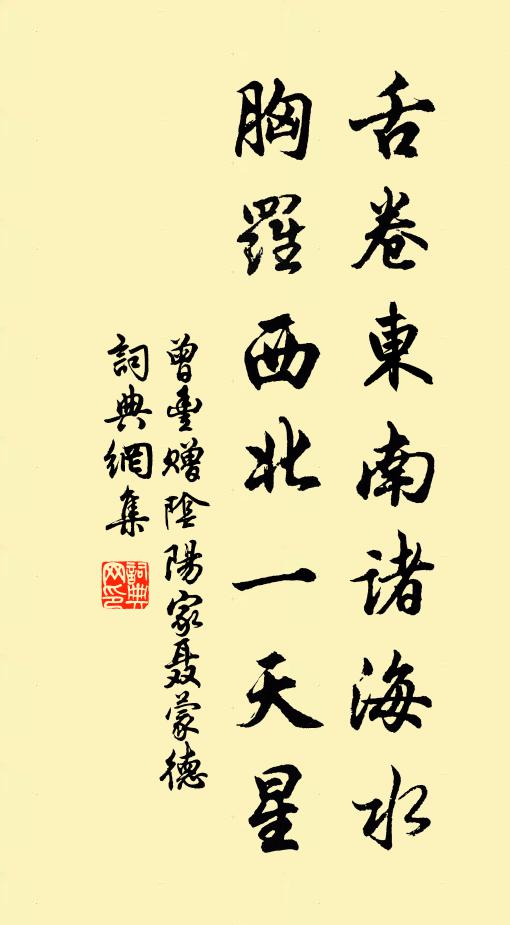 舌卷東南諸海水
胸羅西北一天星
曾豐贈陰陽家聶蒙德
詞典網集
詞典
网印